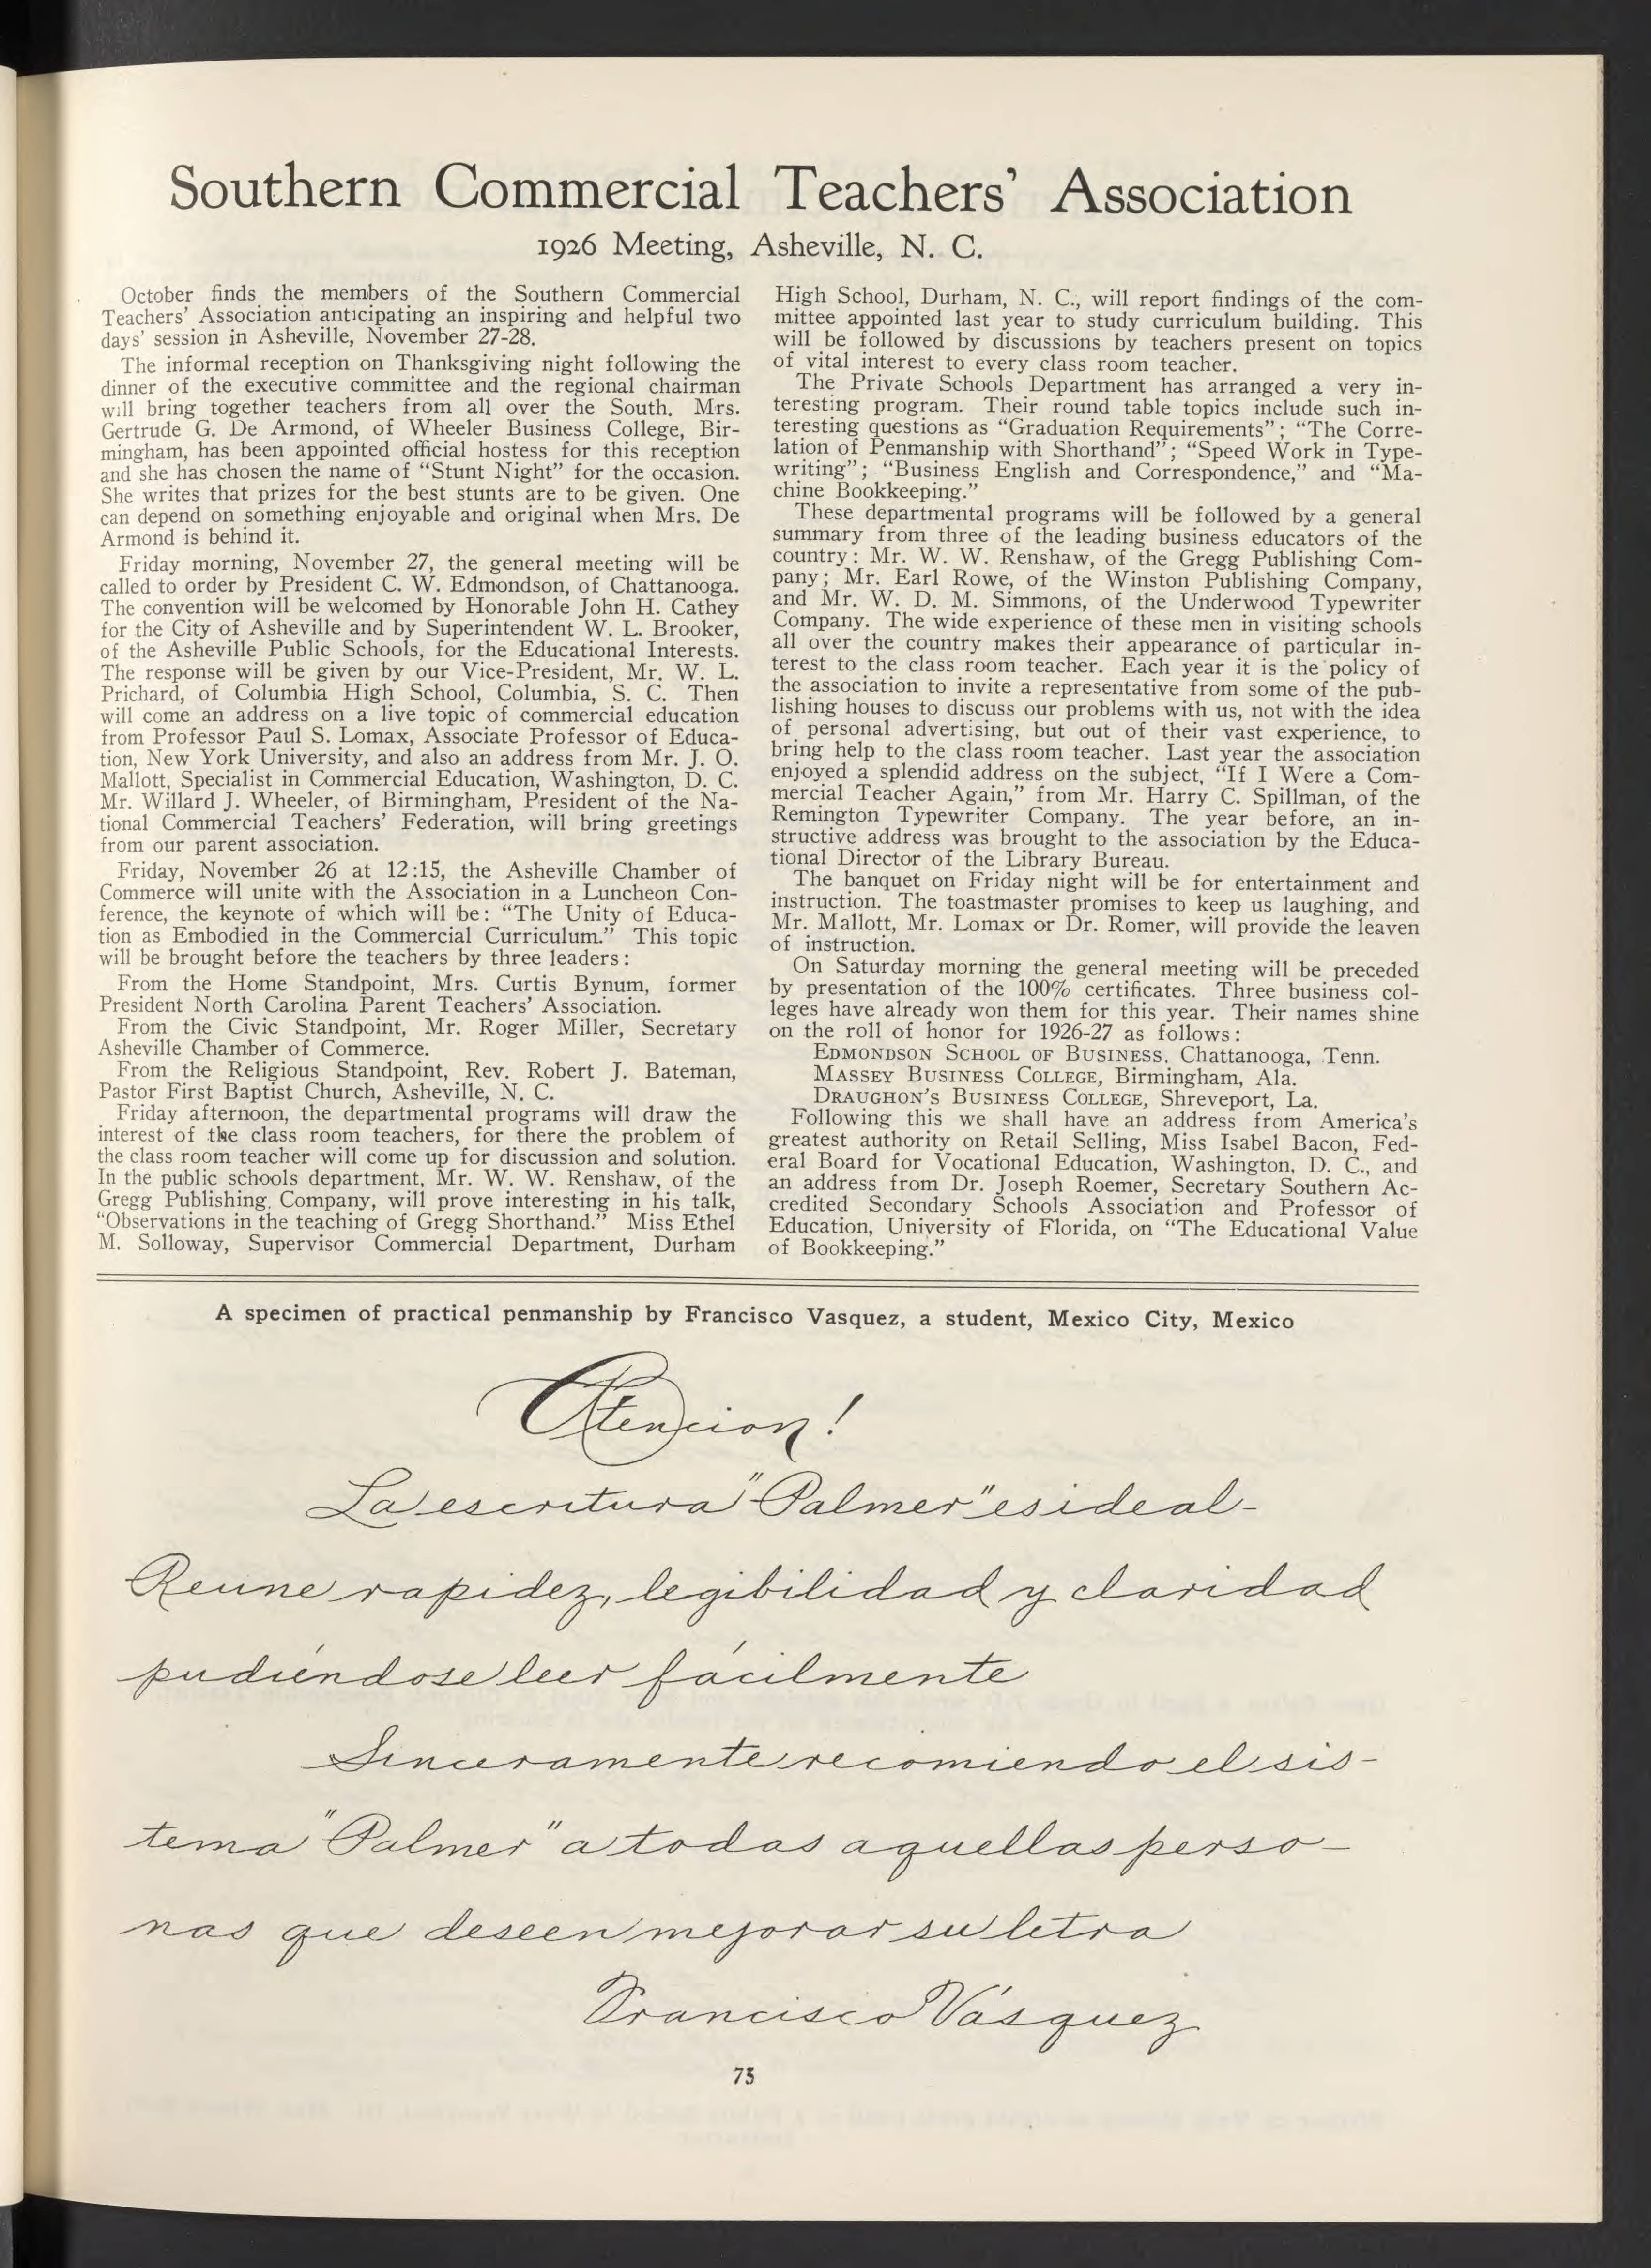 Southern Commercial Teachers' Association
1926 Meeting, Asheville, N. C.
October finds the members of the Southern Commercial
Teachers' Association anticipating an inspiring and helpful two
days' session in Asheville, November 27-28.
The informal reception on Thanksgiving night following the
dinner of the executive committee and the regional chairman
will bring together teachers from all over the South. Mrs.
Gertrude G. De Armond, of Wheeler Business College, Bir-
mingham, has been appointed official hostess for this reception
and she has chosen the name of “Stunt Night” for the occasion.
She writes that prizes for the best stunts are to be given. One
can depend on something enjoyable and original when Mrs. De
Armond is behind it.
Friday morning, November 27, the general meeting will be
called to order by President C. W. Edmondson, of Chattanooga.
The convention will be welcomed by Honorable John H. Cathey
for the City of Asheville and by Superintendent W. L. Brooker,
of the Asheville Public Schools, for the Educational Interests.
The response will be given by our Vice-President, Mr. W. L.
Prichard, of Columbia High School, Columbia, S. C. Then
will come an address on a live topic of commercial education
from Professor Paul S. Lomax, Associate Professor of Educa-
tion, New York University, and also an address from Mr. J. O.
Mallott, Specialist in Commercial Education, Washington, D. C.
Mr. Willard J. Wheeler, of Birmingham, President of the Na-
tional Commercial Teachers' Federation, will bring greetings
from our parent association.
Friday, November 26 at 12:15, the Asheville Chamber of
Commerce will unite with the Association in a Luncheon Con-
ference, the keynote of which will be: “The Unity of Educa-
tion as Embodied in the Commercial Curriculum.” This topic
will be brought before the teachers by three leaders:
From the Home Standpoint, Mrs. Curtis Bynum, former
President North Carolina Parent Teachers' Association.
From the Civic Standpoint, Mr. Roger Miller, Secretary
Asheville Chamber of Commerce.
From the Religious Standpoint, Rev. Robert J. Bateman,
Pastor First Baptist Church, Asheville, N. C.
Friday afternoon, the departmental programs will draw the
interest of the class room teachers, for there the problem of
the class room teacher will come up for discussion and solution.
In the public schools department, Mr. W. W. Renshaw, of the
Gregg Publishing Company, will prove interesting in his talk,
“Observations in the teaching of Gregg Shorthand.” Miss Ethel
M. Solloway, Supervisor Commercial Department, Durham
High School, Durham, N. C., will report findings of the com-
mittee appointed last year to study curriculum building. This
will be followed by discussions by teachers present on topics
of vital interest to every class room teacher.
The Private Schools Department has arranged a very in-
teresting program. Their round table topics include such in-
teresting questions as “Graduation Requirements”; “The Corre-
lation of Penmanship with Shorthand”; “Speed Work in Type-
writing”; “Business English and Correspondence,” and “Ma-
chine Bookkeeping.”
These departmental programs will be followed by a general
summary from three of the leading business educators of the
country: Mr. W. W. Renshaw, of the Gregg Publishing Com-
pany; Mr. Earl Rowe, of the Winston Publishing Company,
and Mr. W. D. M. Simmons, of the Underwood Typewriter
Company. The wide experience of these men in visiting schools
all over the country makes their appearance of particular in-
terest to the class room teacher. Each year it is the policy of
the association to invite a representative from some of the pub-
lishing houses to discuss our problems with us, not with the idea
of personal advertising, but out of their vast experience, to
bring help to the class room teacher. Last year the association
enjoyed a splendid address on the subject, “If I Were a Com-
mercial Teacher Again,” from Mr. Harry C. Spillman, of the
Remington Typewriter Company. The year before, an in-
structive address was brought to the association by the Educa-
tional Director of the Library Bureau.
The banquet on Friday night will be for entertainment and
instruction. The toastmaster promises to keep us laughing, and
Mr. Mallott, Mr. Lomax or Dr. Romer, will provide the leaven
of instruction.
On Saturday morning the general meeting will be preceded
by presentation of the 100% certificates. Three business col-
leges have already won them for this year. Their names shine
on the roll of honor for 1926-27 as follows:
EDMONDSON SCHOOL OF BUSINESS, Chattanooga, Tenn.
MASSEY BUSINESS COLLEGE, Birmingham, Ala.
DRAUGHON'S BUSINESS COLLEGE, Shreveport, La.
Following this we shall have an address from America's
greatest authority on Retail Selling, Miss Isabel Bacon, Fed-
eral Board for Vocational Education, Washington, D. C., and
an address from Dr. Joseph Roemer, Secretary Southern Ac-
credited Secondary Schools Association and Professor of
Education, University of Florida, on “The Educational Value
of Bookkeeping.”
A specimen of practical penmanship by Francisco Vasquez, a student, Mexico City, Mexico
Atencion!
La escritura "Palmer" es ideal-
Reune rapidez, legibilidad y claridad
pudiéndose leer fácilmente
Sinceramente recomiendo el sis-
tema "Palmer" a todas aquellas perso-
nas que deseen mejorar su letra
Francisco Vásquez
75